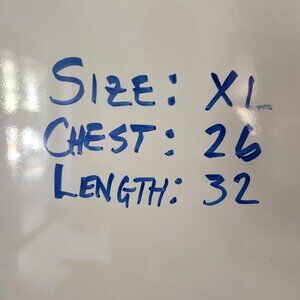 SIZE: XL
CHEST: 26
LENGTH: 32